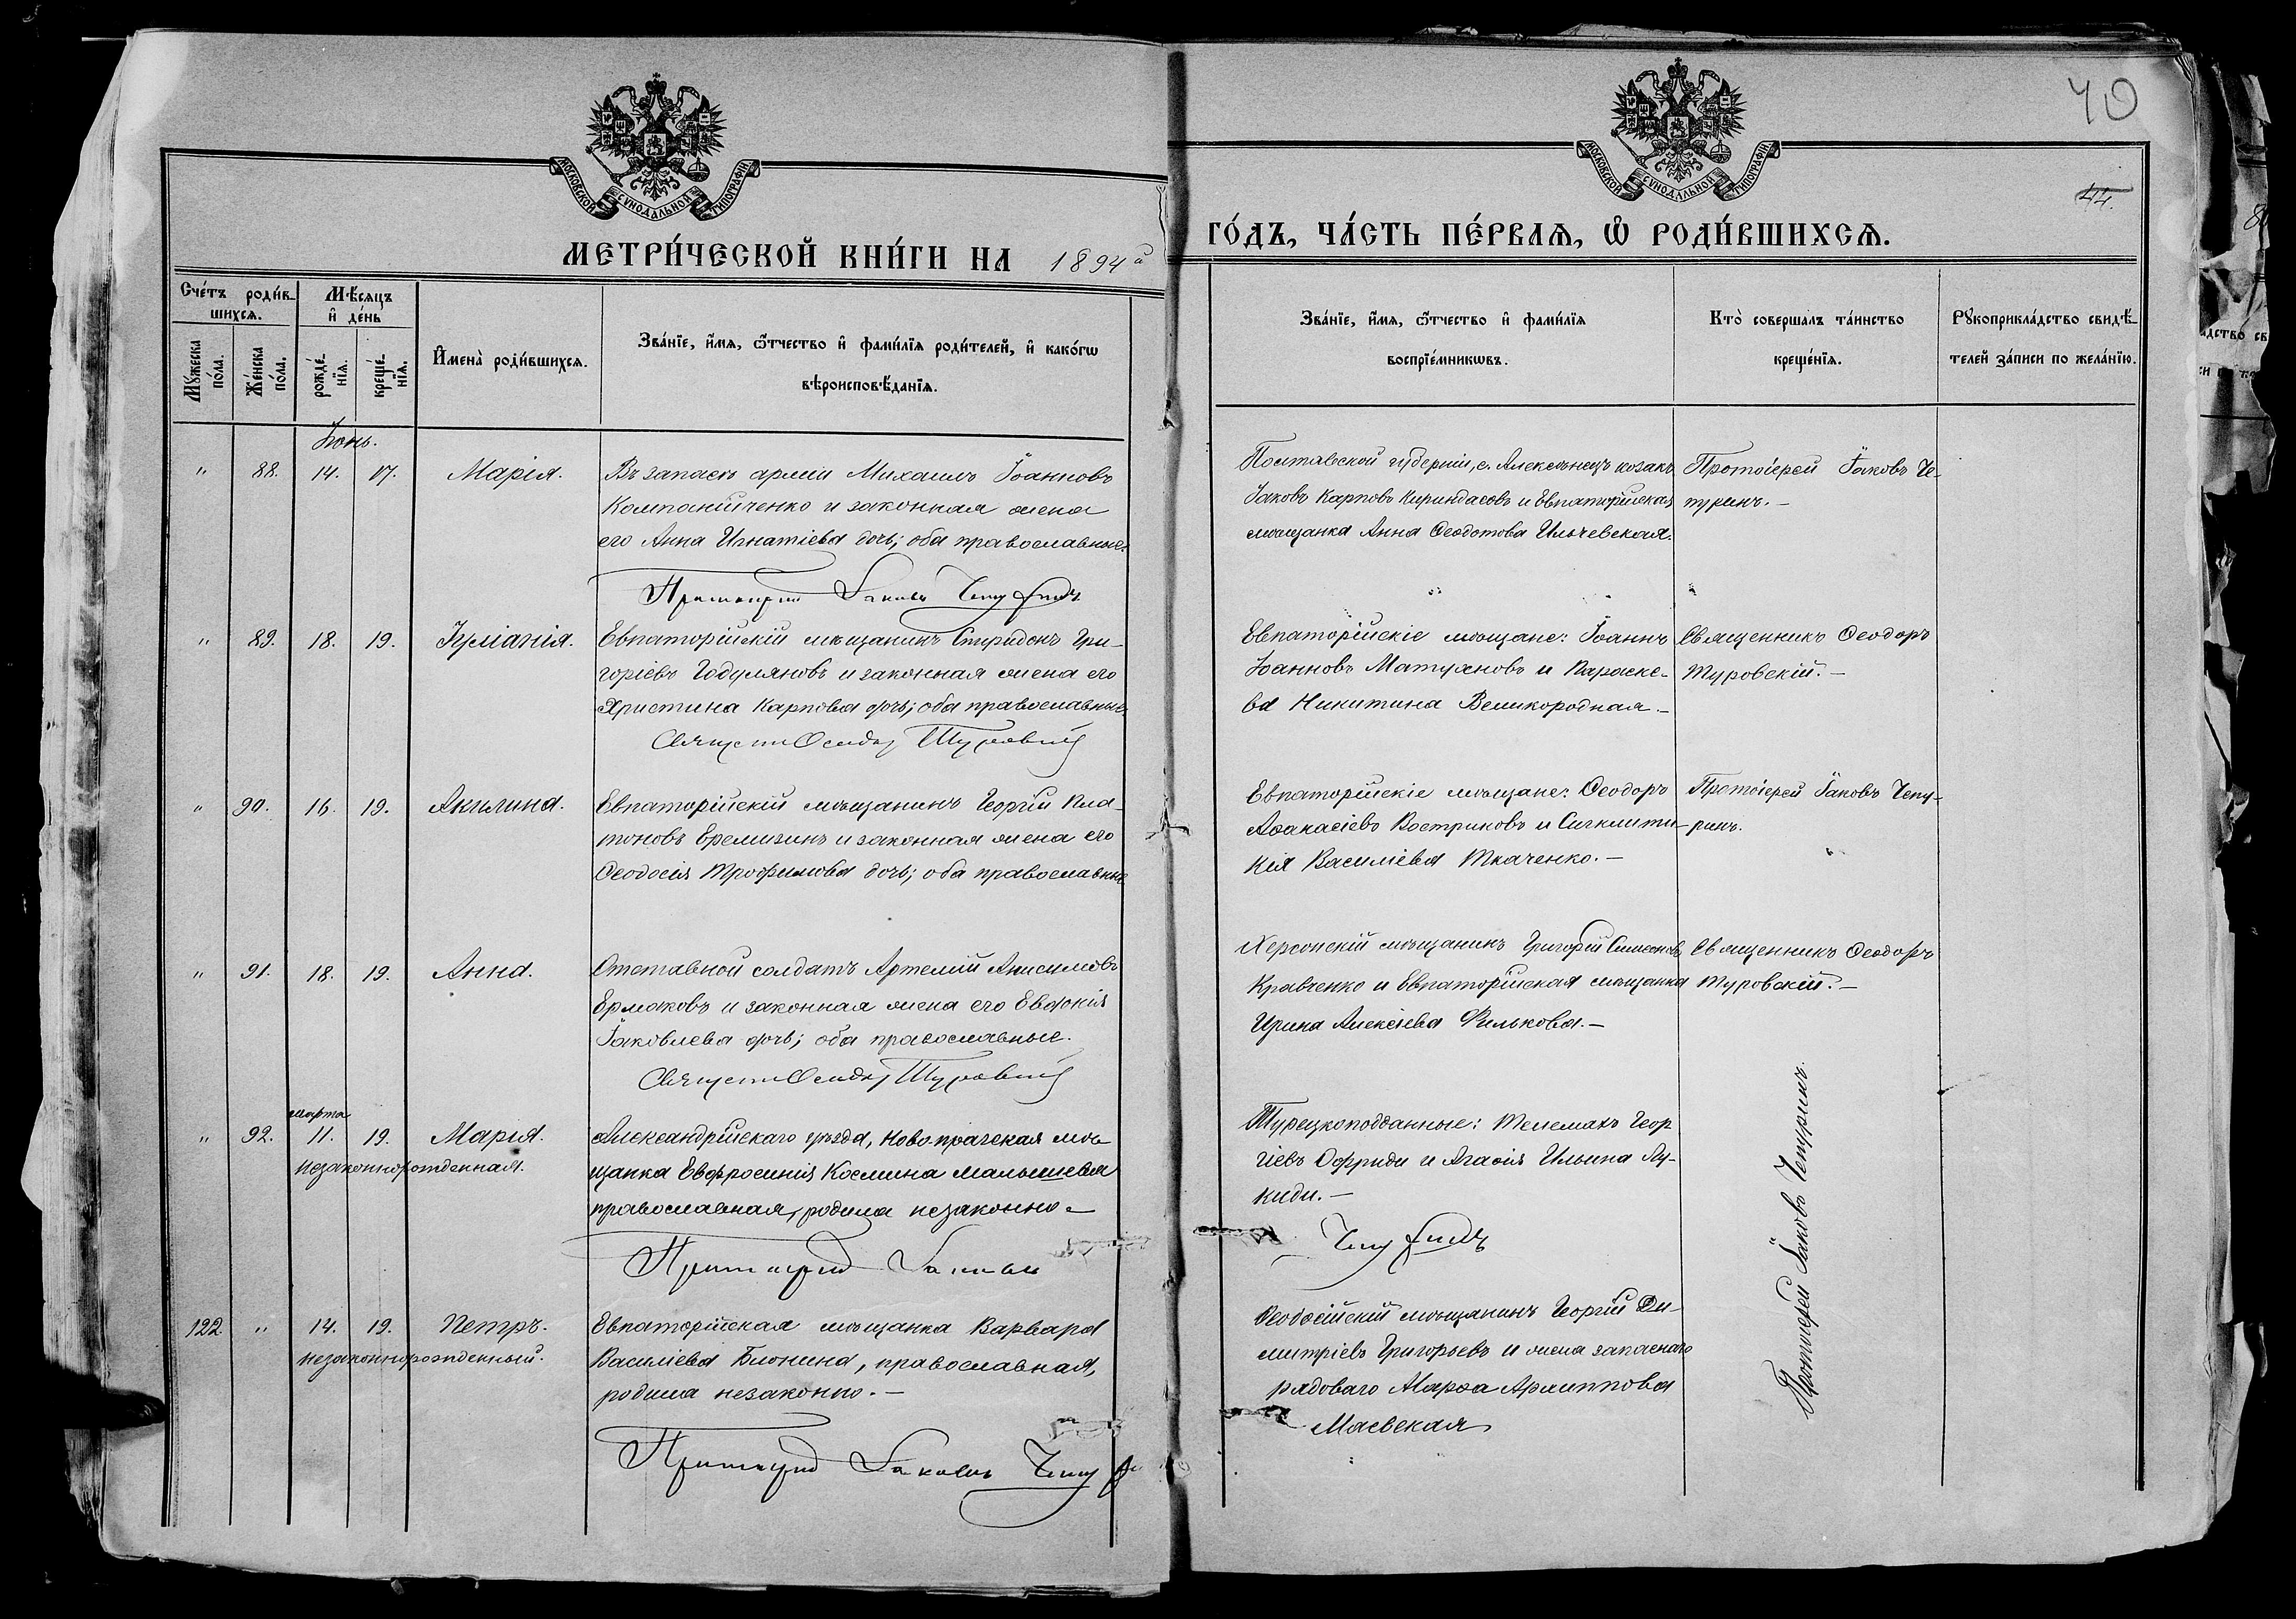 40
44.
МОСКОВСКОЙ СѴНОДАЛЬНОЙ ТИПОГРАФІИ
МОСКОВСКОЙ СѴНОДАЛЬНОЙ ТИПОГРАФІИ
МЕТРИ́ЧЕСКОЙ КНИ́ГИ НА 1894й ГО́ДЪ, ЧА́СТЬ ПЕ́РВАѦ, Ѡ РОДИ́ВШИХСѦ.
Счéтъ роди́в-
шихсѧ.
Мѣ́сѧцъ
и҆ дéнь
Мꙋ́жеска
пóла.
Жéнска
пóла.
рождé-
нїѧ.
крещé-
нїѧ.
И҆менà роди́вшихсѧ.
Звáнїе, и҆́мѧ, ѻ҆́тчество и҆ фами́лїѧ роди́телей, и҆ какóгѡ
вѣроисповѣ́данїѧ.
Звáнїе, и҆́мѧ, ѻ҆́тчество и҆ фами́лїѧ
воспрїéмникѡвъ.
Ктò совершалъ тáинство
крещéнїѧ.
Рꙋкоприклáдство свидѣ́-
телей зáписи по желáнїю.
Іюнь.
" 88. 14. 17. Марія.
Въ запасѣ арміи Михаилъ Іоанновъ
Компанійченко и законная жена
его Анна Игнатіева дочь; оба православные.
Протоіерей Іаковъ Чепуринъ
Полтавской губерніи, с. козакъ
Іаковъ Карповъ и Евпаторійская
мѣщанка Анна Ѳеодотова Ильчевская.
Протоіерей Іаковъ Че-
пуринъ. –
" 89. 18. 19. Іуліанія.
Евпаторійскій мѣщанинъ Спиридонъ Гри-
горіевъ Годуляновъ и законная жена его
Христина Карпова дочь; оба православные.
Священ. Ѳеодоръ Туровскій
Евпаторійскіе мѣщане: Іоаннъ
Іоанновъ Матухновъ и Параске-
ва Никитина Великородная. –
Священникъ Ѳеодоръ
Туровскій. –
" 90. 16. 19. Акилина.
Евпаторійскій мѣщанинъ Георгій Пла-
тоновъ Еремизинъ и законная жена его
Ѳеодосія Трофимова дочь; оба православные
Евпаторійскіе мѣщане: Ѳеодоръ
Аѳанасіевъ Востриковъ и Сигклити-
кія Василіева Ткаченко. –
Протоіерей Іаковъ Чепу-
ринъ.
" 91. 18. 19. Анна.
Отставной солдатъ Артемій Анисимовъ
Ермаковъ и законная жена его Евдокія
Іаковлева дочь; оба православные.
Священ. Ѳеодоръ Туровскій
Херсонскій мѣщанинъ Григорій Симеоновъ
Кравченко и Евпаторійская мѣщанка
Ирина Алексіева Филькова. –
Священникъ Ѳеодоръ
Туровскій. –
марта
" 92. 11. 19. Марія.
незаконнорожденная.
Александрійскаго уѣзда, Новопражская мѣ-
щанка Евфросинія Космина Малышева
православная, родила незаконно –
Протоіерей Іаковъ Чепуринъ
Турецкоподданные: Телемахъ Геор
гіевъ Офриди и Агаѳія Ильина Лу-
киди. –
Протоіерей Іаковъ Чепуринъ.
122. " 14. 19. Петръ.
незаконнорожденный.
Евпаторійская мѣщанка Варвара
Василіева Блонина, православная,
родила незаконно. –
Протоіерей Іаковъ
Ѳеодосійскій мѣщанинъ Георгій Ди-
митріевъ Григорьевъ и жена запаснаго
рядоваго Марѳа Архиппова
Маевская